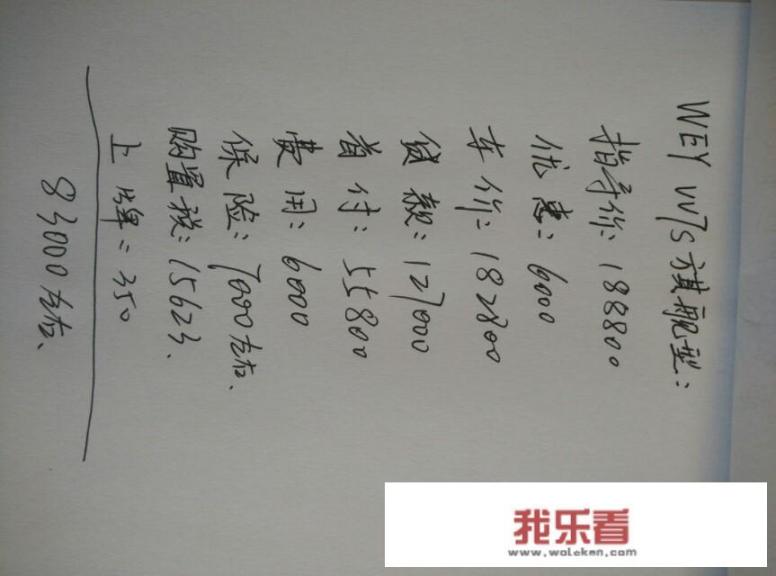 WEY VV7S 旗舰型:
指导价: 188800
优惠: 6000
车价: 182800
贷款: 127000
首付: 55800
费用: 6000
保险: 7000左右、
购置税: 15623、
上牌: 350
83000左右、
我乐看
www.woleken.com